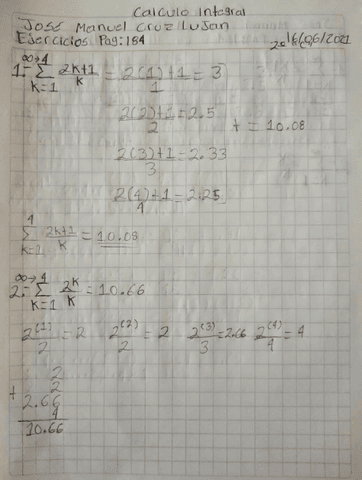 Calculo Integral
José Manuel Cruz Lujan
Ejercicios Pag:184
16/06/2021
∞→4
1=Σ 2k+1/k = 2(1)+1/1 = 3
k=1
2(2)+1/2 = 2.5
t = 10.08
2(3)+1/3 = 2.33
2(4)+1/4 = 2.25
4
Σ 2k+1/k = 10.08
k=1
∞→4
2=Σ 2^k/k = 10.66
k=1
2^(1)/2 = 2 2^(2)/2 = 2 2^(3)/3 = 2.66 2^(4)/4 = 4
2
2
+ 2.66
4
10.66